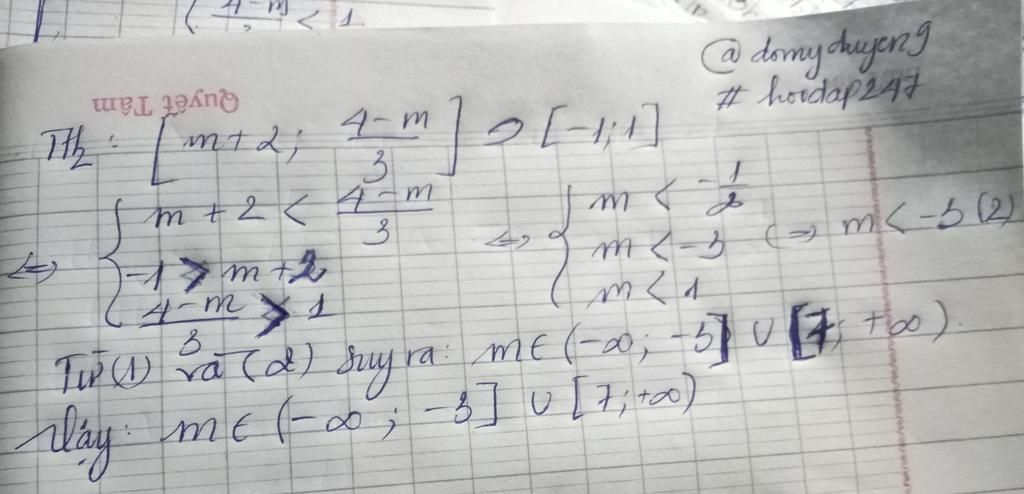 4-m < 1
@domyduyen9
#hoidap247
Quyết Tâm
TH2: [m+2; (4-m)/3] ⊃ [-1;1]
⇔ { m+2 < (4-m)/3 ⇔ { m < -1/2
-1 ≥ m+2 m < -3 ⇔ m < -3 (2)
(4-m)/3 ≥ 1 m < 1
Từ (1) và (2) suy ra: m ∈ (-∞; -3] ∪ [7; +∞).
Vậy: m ∈ (-∞; -3] ∪ [7; +∞)